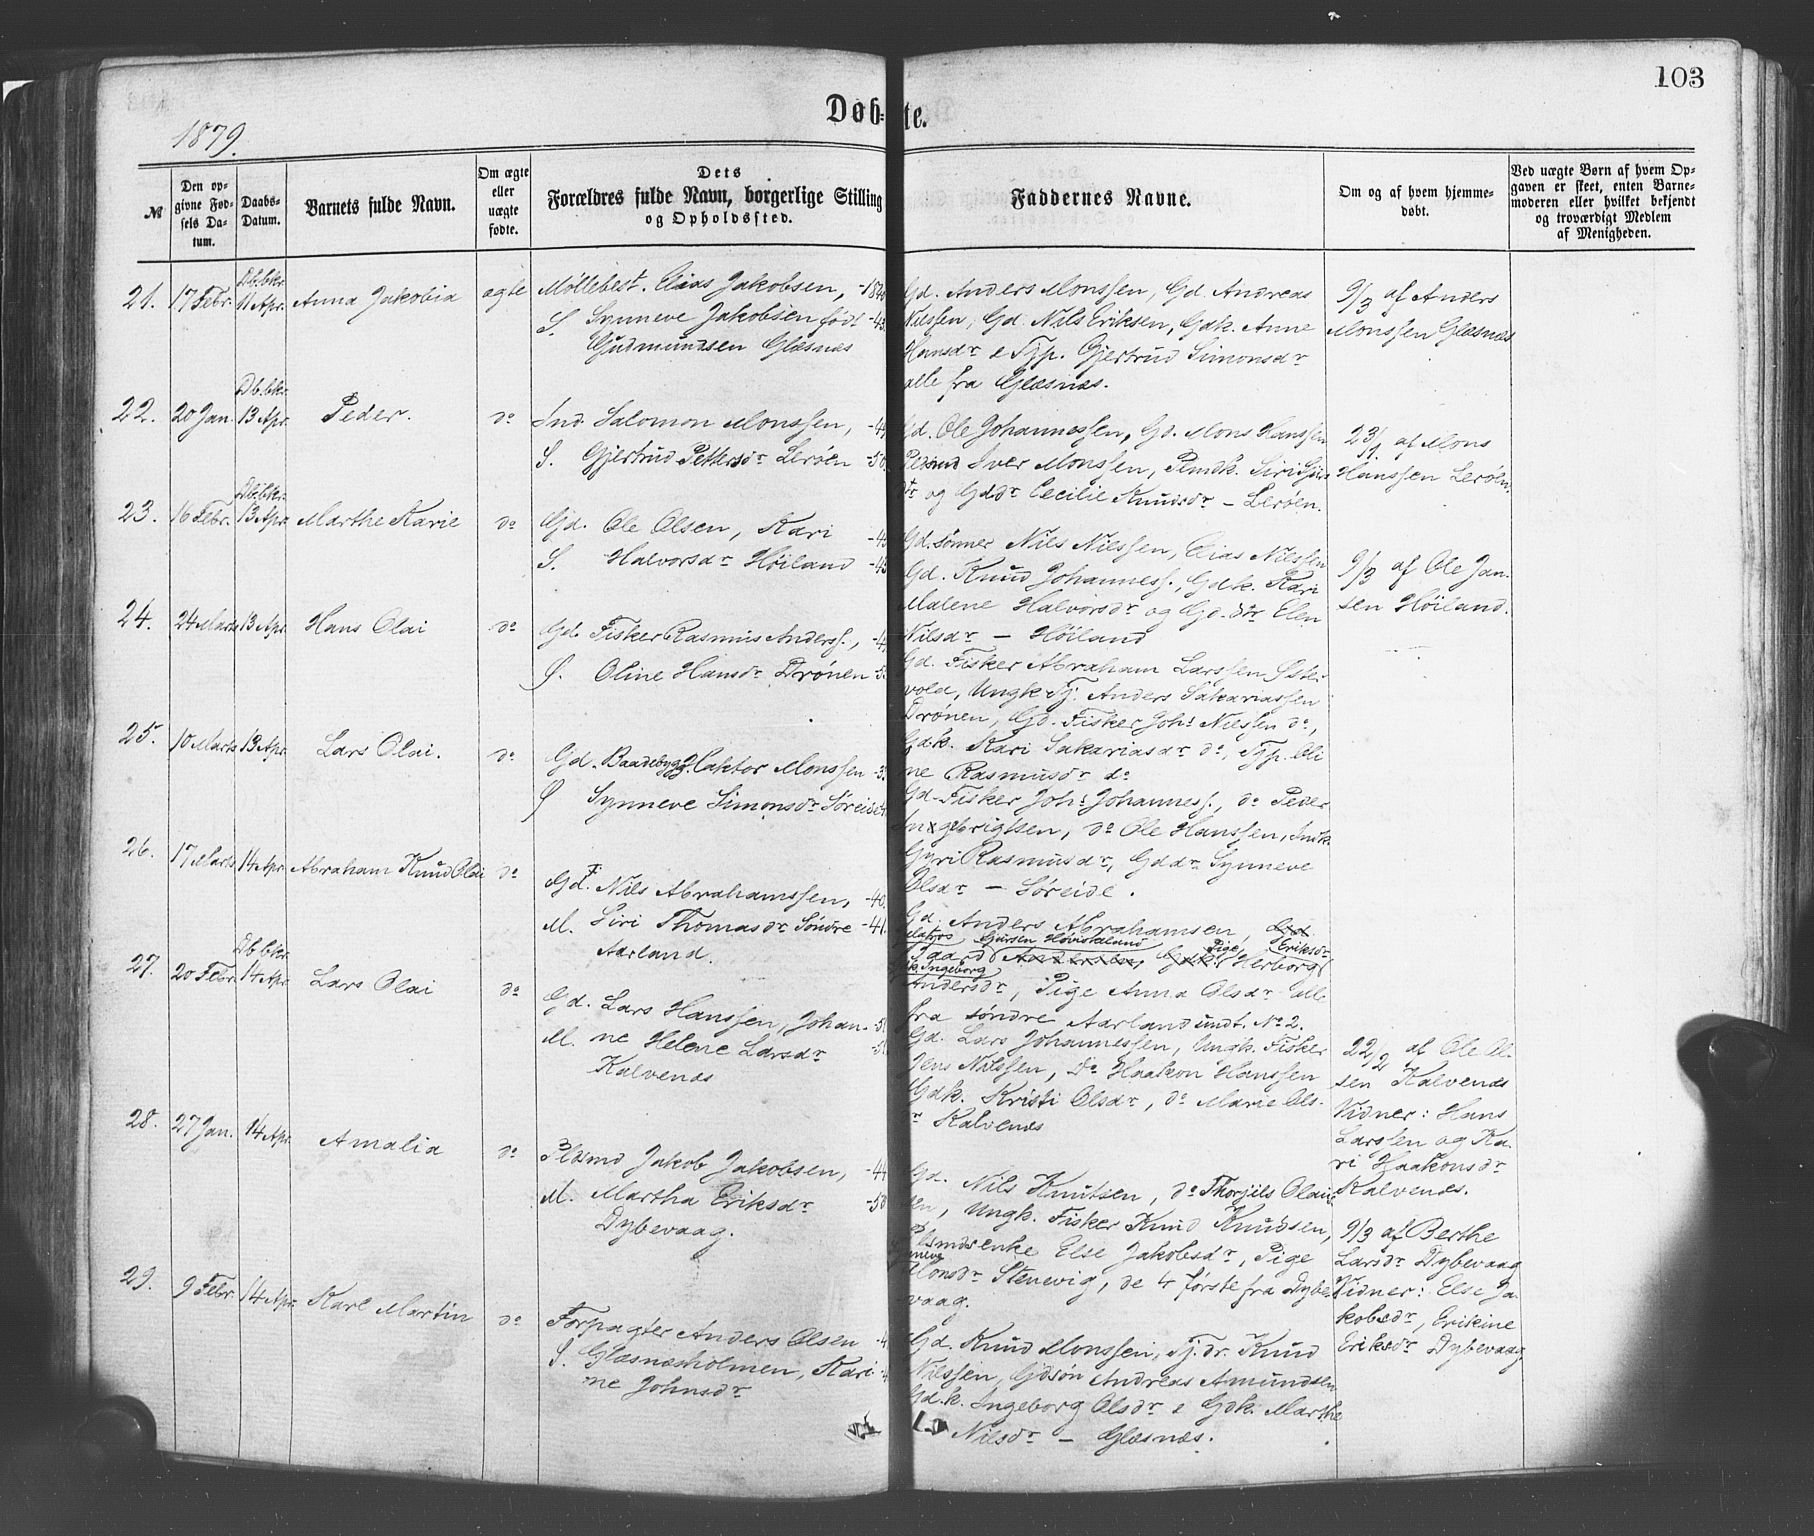 103
Døb-te.
1879.
№
Den opgivne Fødsels Datum.
Daabs-Datum.
Barnets fulde Navn.
Om ægte eller uægte fødte.
Dets Forældres fulde Navn, borgerlige Stilling og Opholdssted.
Faddernes Navne.
Om og af hvem hjemmedøbt.
Ved uægte Børn af hvem Opgaven er skeet, enten Barnemoderen eller hvilket bekjendt og troværdigt Medlem af Menigheden.
21. 17 Febr. Db.bkr. 11 Apr. Anna Jakobia ægte
Møllebest. Elias Jakobsen, -1840
S. Synneve Jakobsen født -43
Gudmundsen Glæsnæs
Gd. Anders Monssen, Gd. Andreas
Nilssen, Gd. Nils Eriksen, Gdk. Anne
Hansdr & Tjp. Gjertrud Simonsdr
alle fra Glæsnæs.
9/3 af Anders
Monssen Glæsnæs
22. 20 Jan. Db.bkr. 13 Apr. Peder. do
Ind. Salomon Monssen,
S. Gjertrud Pettersdr Lerøen -50
Gd. Ole Johannessen, Gd. Mons Hanssen
Plsmd Iver Monssen, Plmdk. Siri
dtr og Gddr Cecilie Knudsdr - Lerøen.
23/1 af Mons
Hanssen Lerøen.
23. 16 Febr. Db.bkr. 13 Apr. Marthe Karie do
Gd. Ole Olsen, Kari
S. Halvorsdr Høiland
Gd.sønner Nils Nilssen, Elias Nilssen
Gd. Knud Johanness., Gdk. Kari
Malene Halvorsdr og Gd.dtr Elen
Nilsdr - Høiland
9/3 af Ole Jan-
sen Høiland.
24. 24 Marts 13 Apr. Hans Olai do
Gd. Fisker Rasmus Anderss.,
Ø. Oline Hansdr Drønen
Gd. Fisker Abraham Larssen Øster-
vold, Ungk Tj. Anders Sakariassen
Drønen, Gd. Fisker Johs Nilssen do,
Gdk. Kari Sakariasdr do, Tjp. Oli-
ne Rasmusdr do
25. 10 Marts 13 Apr. Lars Olai. do
Gd. Baadebygg. Haktor Monssen
Ø Synneve Simonsdr Søreide
Gd. Fisker Johs Johanness., do Peder
Ingebrigtsen, do Ole Hanssen, Indk
Gyri Rasmusdr, Gddr Synneve
Olsdr - Søreide.
26. 17 Marts 14 Apr. Abraham Knud Olai do
Gd. F Nils Abrahamssen, -40.
M. Siri Thomasdr Søndre -41.
Aarland.
Gd. Anders Abrahamsen,
Pige Eriksdr
Herborg
Ingeborg
Andersdr, Pige Anna Olsdr alle
fra søndre Aarland undt. No 2.
27. 20 Febr. Db.bkr. 14 Apr. Lars Olai do
Gd. Lars Hanssen, Johan-
M. ne Helene Larsdr
Kalvenæs
Gd. Lars Johannessen, Ungk. Fisker
Jens Nilssen, Do Haakon Hanssen
Gdk. Kristi Olsdr, do Marie Ols-
dr Kalvenæs
22/2 af Ole Ol-
sen Kalvenæs
Vidner: Hans
Larssen og Ka-
ri Haakonsdr
Kalvenæs.
28. 27 Jan. 14 Apr. Amalia do
Plsmd Jakob Jakobsen, -44
M. Martha Eriksdr -50
Dybevaag.
Gd. Nils Knutsen, do Thorjils Olai-
sen, Ungk. Fisker Knud Knudsen,
Plsmdsenke Else Jakobsdr, Pige
Synneve
Monsdr Stenevig, de 4 første fra Dybe-
vaag.
9/3 af Berthe
Larsdr Dybevaag
Vidner: Else Ja-
kobsdr, Erikine
Eriksdr Dybevaag
29. 9 Febr. 14 Apr. Karl Martin do
Forpagter Anders Olsen
S. Glæsnæsholmen, Kari-
ne Johnsdr
Gd. Knud Monssen, Tj.dr. Knud
Nilssen, Gdsøn Andreas Amundsen
Gd.k. Ingeborg Olsdr & Gdk. Marthe
Nilsdr - Glæsnæs.